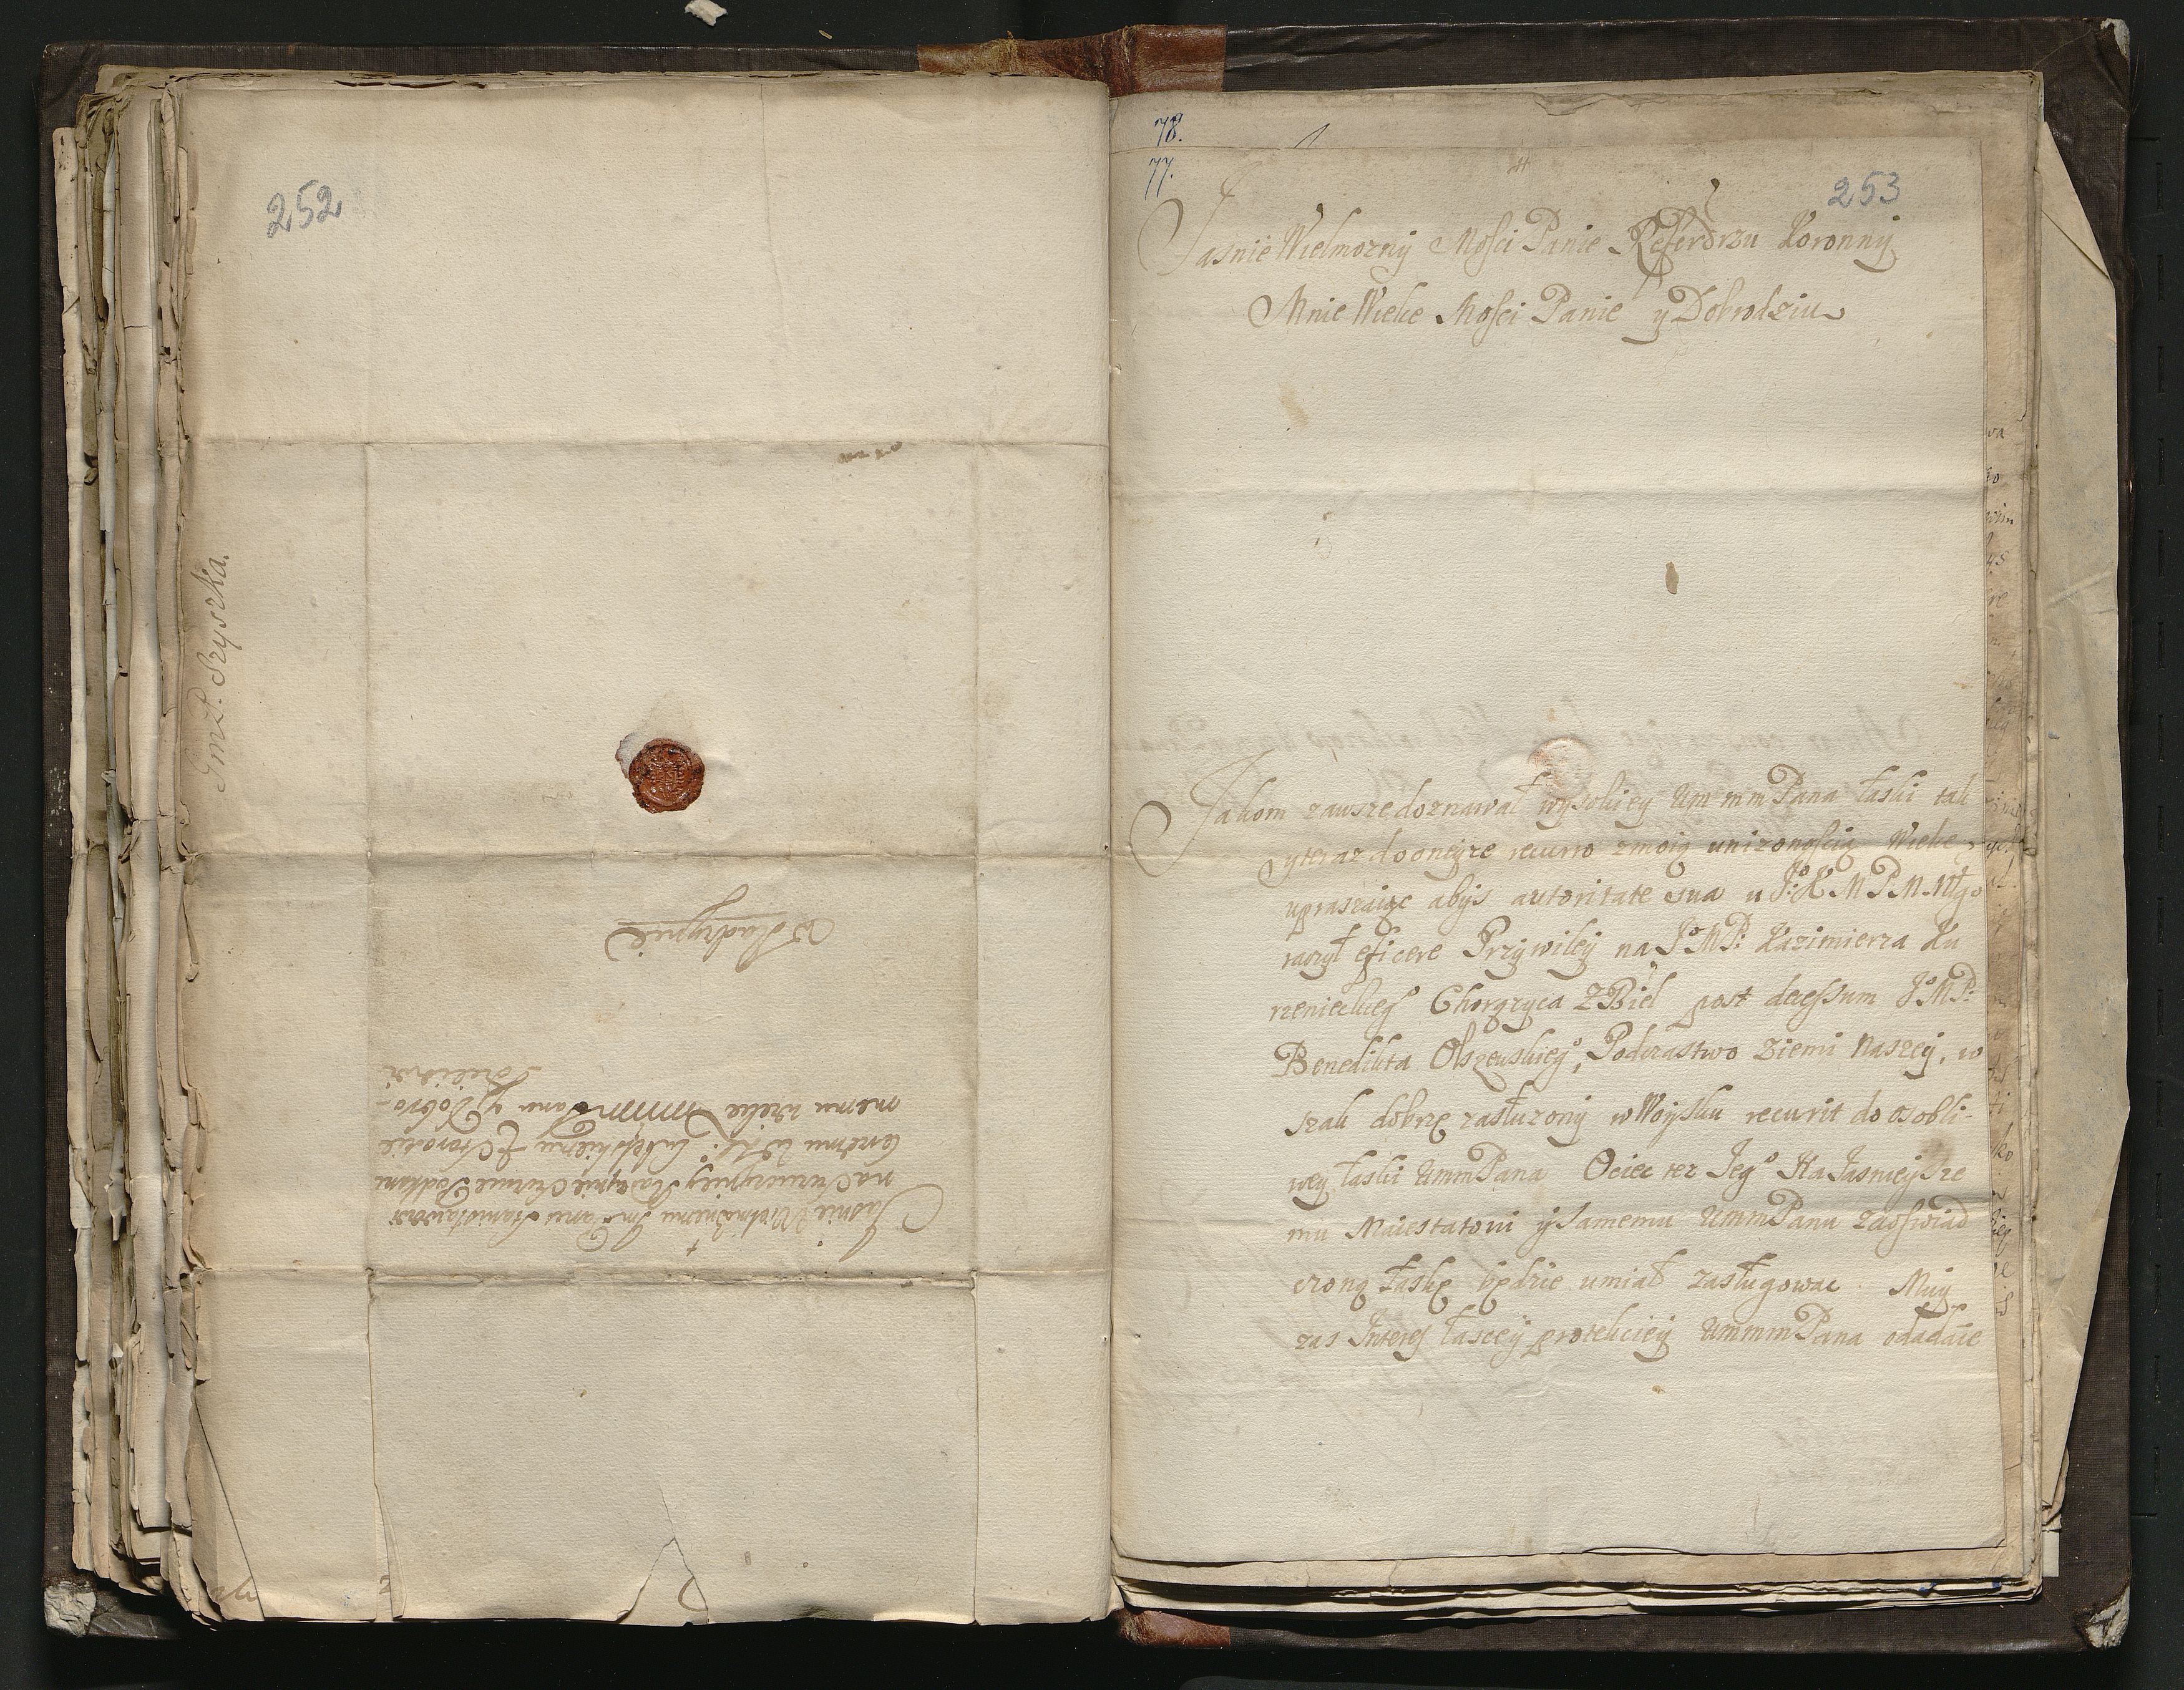 252
JmP. Szyszka.
w Radzyniu
Jasnie Wielmożnemu JmPanu Stanisławowi
na
lenemu Lubelskiemu Staroscie
memu wielce mmmPanu y Dobro-
dzieiowi
78.
77.
253
Jasnie Wielmozny Mosci Panie Referdrzu Koronny
Mnie Wielce Mosci Panie y Dobrodziu
Jakom zawsze doznawał wysokiey Um mm Pana łaski tak
y teraz do oneyze recurro z moią unizonoscią Wielce
upraszaiąc abys autoritate sua u J:K M P N Mgo
raczył eficere Przywiley na JMP: Kazimierza Ku
rzenieckieg Chorązyca Z Biel post decessum JMP:
Benedikta Olszewskiego, Podczastwo Ziemi Naszey, w
szak dobrze zasłuzony w Woysku recurit do osobli-
wey łaski UmmPana Ociec tez Jego Na Jasnieysze
mu Maiestatowi y samemu UmmPanu zaoswiad
czoną łaskę będzie umiał zasługowac. Muy
zas Interes łascey protekciey UmmmPana odadaie